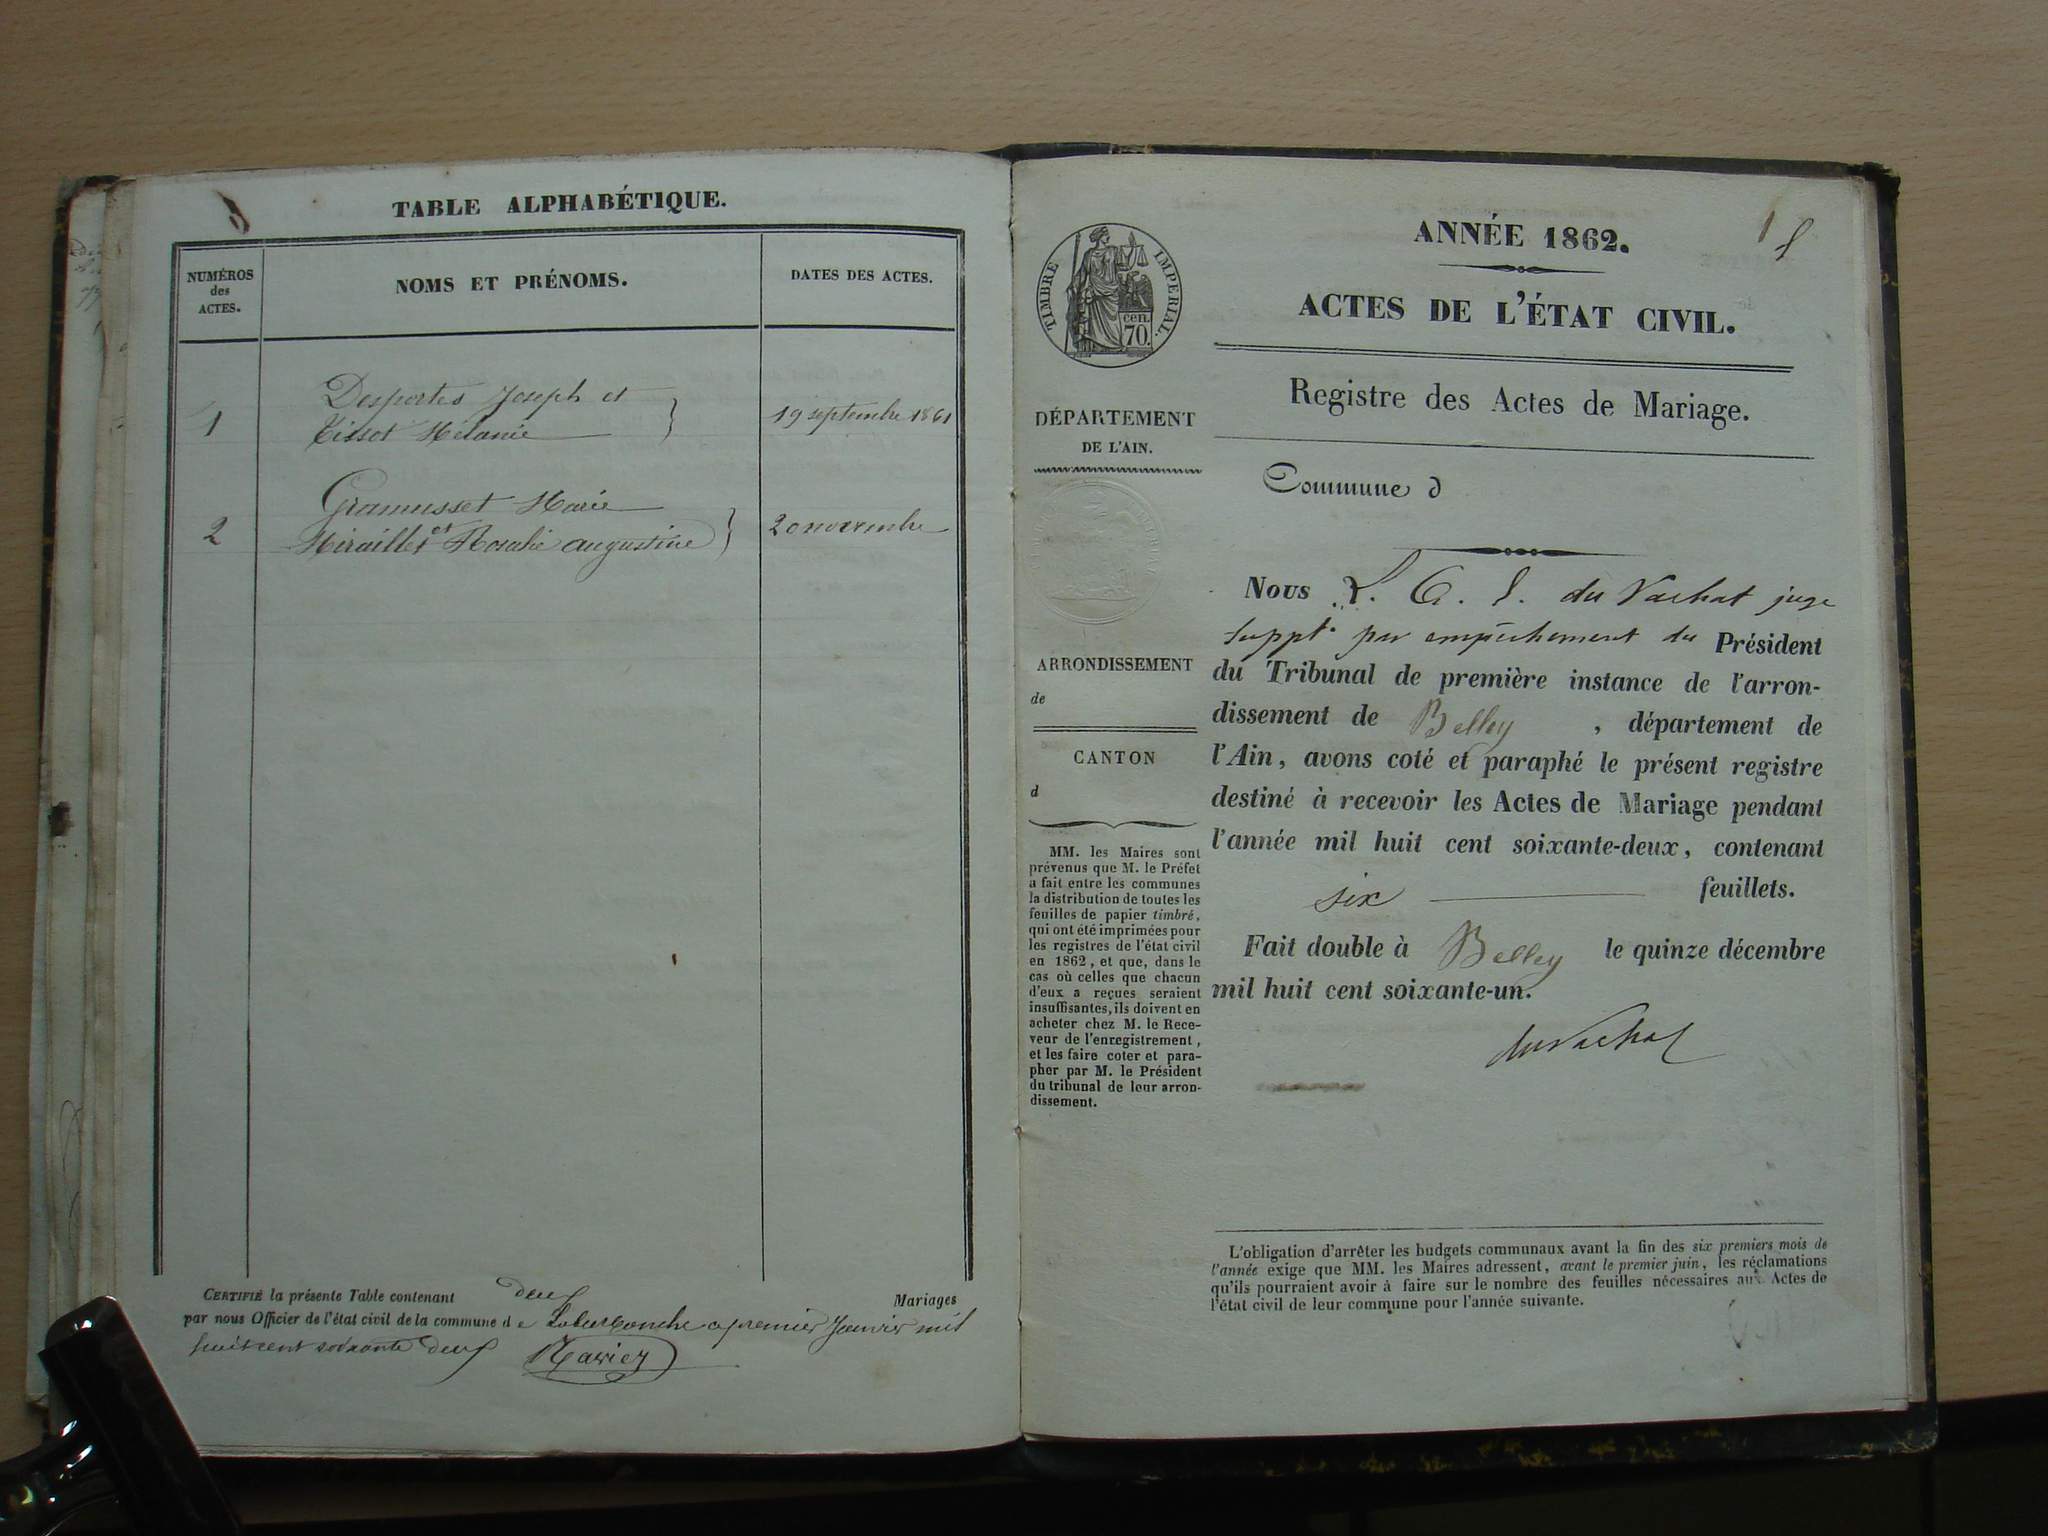 TABLE ALPHABÉTIQUE.
NUMÉROS
des
ACTES.
NOMS ET PRÉNOMS.
DATES DES ACTES.
Desportes Joseph et
1
Tissot Mélanie
19 septembre 1861
Gramusset Marie
2
et Rosalie augustine
20 novembre
CERTIFIÉ la présente Table contenant deux Mariages
par nous Officier de l'état civil de la commune de premier Janvier mil
huit cent soixante deux
ANNÉE 1862.
1
ACTES DE L'ÉTAT CIVIL.
TIMBRE IMPÉRIAL.
cen.
70.
Registre des Actes de Mariage.
DÉPARTEMENT
DE L'AIN.
Commune d
ARRONDISSEMENT
de
CANTON
d
MM. les Maires sont
prévenus que M. le Préfet
a fait entre les communes
la distribution de toutes les
feuilles de papier timbré,
qui ont été imprimées pour
les registres de l'état civil
en 1862, et que, dans le
cas où celles que chacun
d'eux a reçues seraient
insuffisantes, ils doivent en
acheter chez M. le Rece-
veur de l'enregistrement,
et les faire coter et para-
pher par M. le Président
du tribunal de leur arron-
dissement.
Nous du Vachat juge
suppt. par empêchement du Président
du Tribunal de première instance de l'arron-
dissement de Belley, département de
l'Ain, avons coté et paraphé le présent registre
destiné à recevoir les Actes de Mariage pendant
l'année mil huit cent soixante-deux, contenant
six feuillets.
Fait double à Belley le quinze décembre
mil huit cent soixante-un.
duVachat
L'obligation d'arrêter les budgets communaux avant la fin des six premiers mois de
l'année exige que MM. les Maires adressent, avant le premier juin, les réclamations
qu'ils pourraient avoir à faire sur le nombre des feuilles nécessaires aux Actes de
l'état civil de leur commune pour l'année suivante.